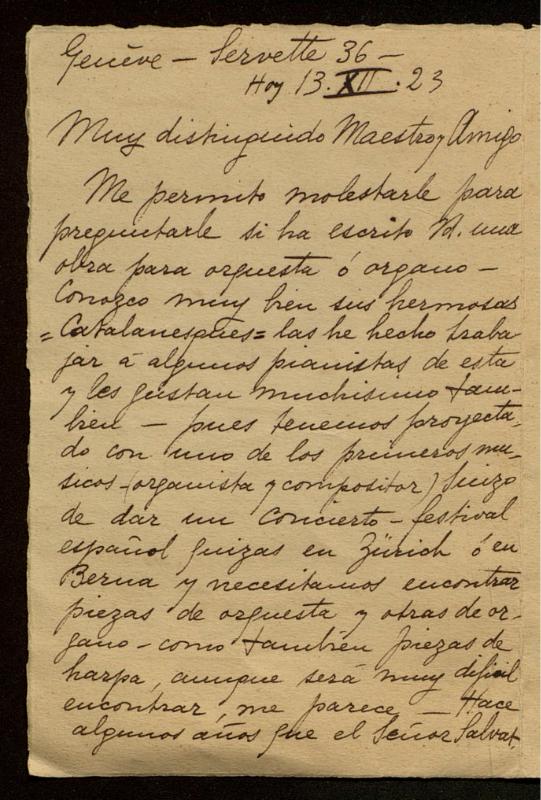 Genève - Servette 36 -
Hoy 13.XII.23
Muy distinguido Maestro y Amigo
Me permito molestarle para
preguntarle si ha escrito V. una
obra para orquesta ó organo -
Conozco muy bien sus hermosas
=Catalanesques= las he hecho traba-
jar á algunos pianistas de esta
y les gustan muchisimo tam-
bien - pues tenemos proyecta-
do con uno de los primeros mu-
sicos - (organista y compositor) Suizo
de dar un Concierto - festival
español quizas en Zürich ó en
Berna y necesitamos encontrar
piezas de orquesta y otras de or-
gano - como también piezas de
harpa, aunque será muy dificil
encontrar, me parece - Hace
algunos años que el Señor Salvat,